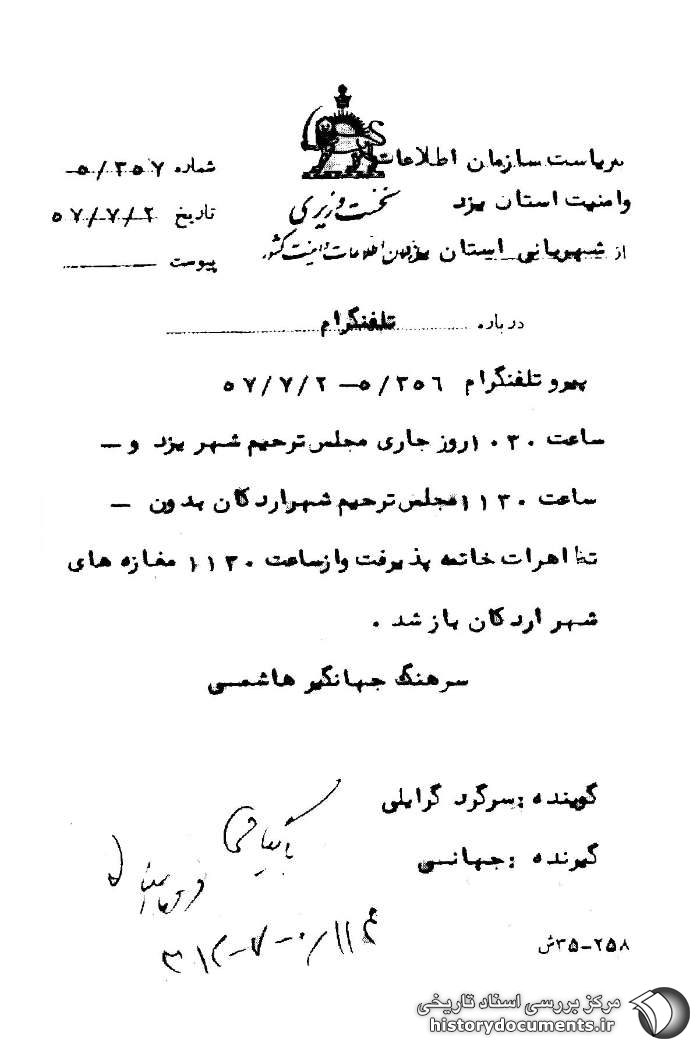 ریاست سازمان اطلاعات
وامنیت استان یزد
نخست وزیری
سازمان اطلاعات و امنیت کشور
از شهربانی استان یزد
شماره ۵/۳۵۷-
تاریخ ۵۷/۷/۲
پیوست
درباره تلفنگرام
پیرو تلفنگرام ۵/۳۵۶ – ۵۷/۷/۲
ساعت ۱۰۳۰ روز جاری مجلس ترحیم شهر یزد و –
ساعت ۱۱۳۰ مجلس ترحیم شهر اردکان بدون –
تظاهرات خاتمه پذیرفت و از ساعت ۱۱۳۰ مغازه های
شهر اردکان باز شد .
سرهنگ جهانگیر هاشمی
گوینده : سرگرد گرایلی
گیرنده : جهانسی
۳۵-۲۵۸ش
مرکز بررسی اسناد تاریخی
historydocuments.ir